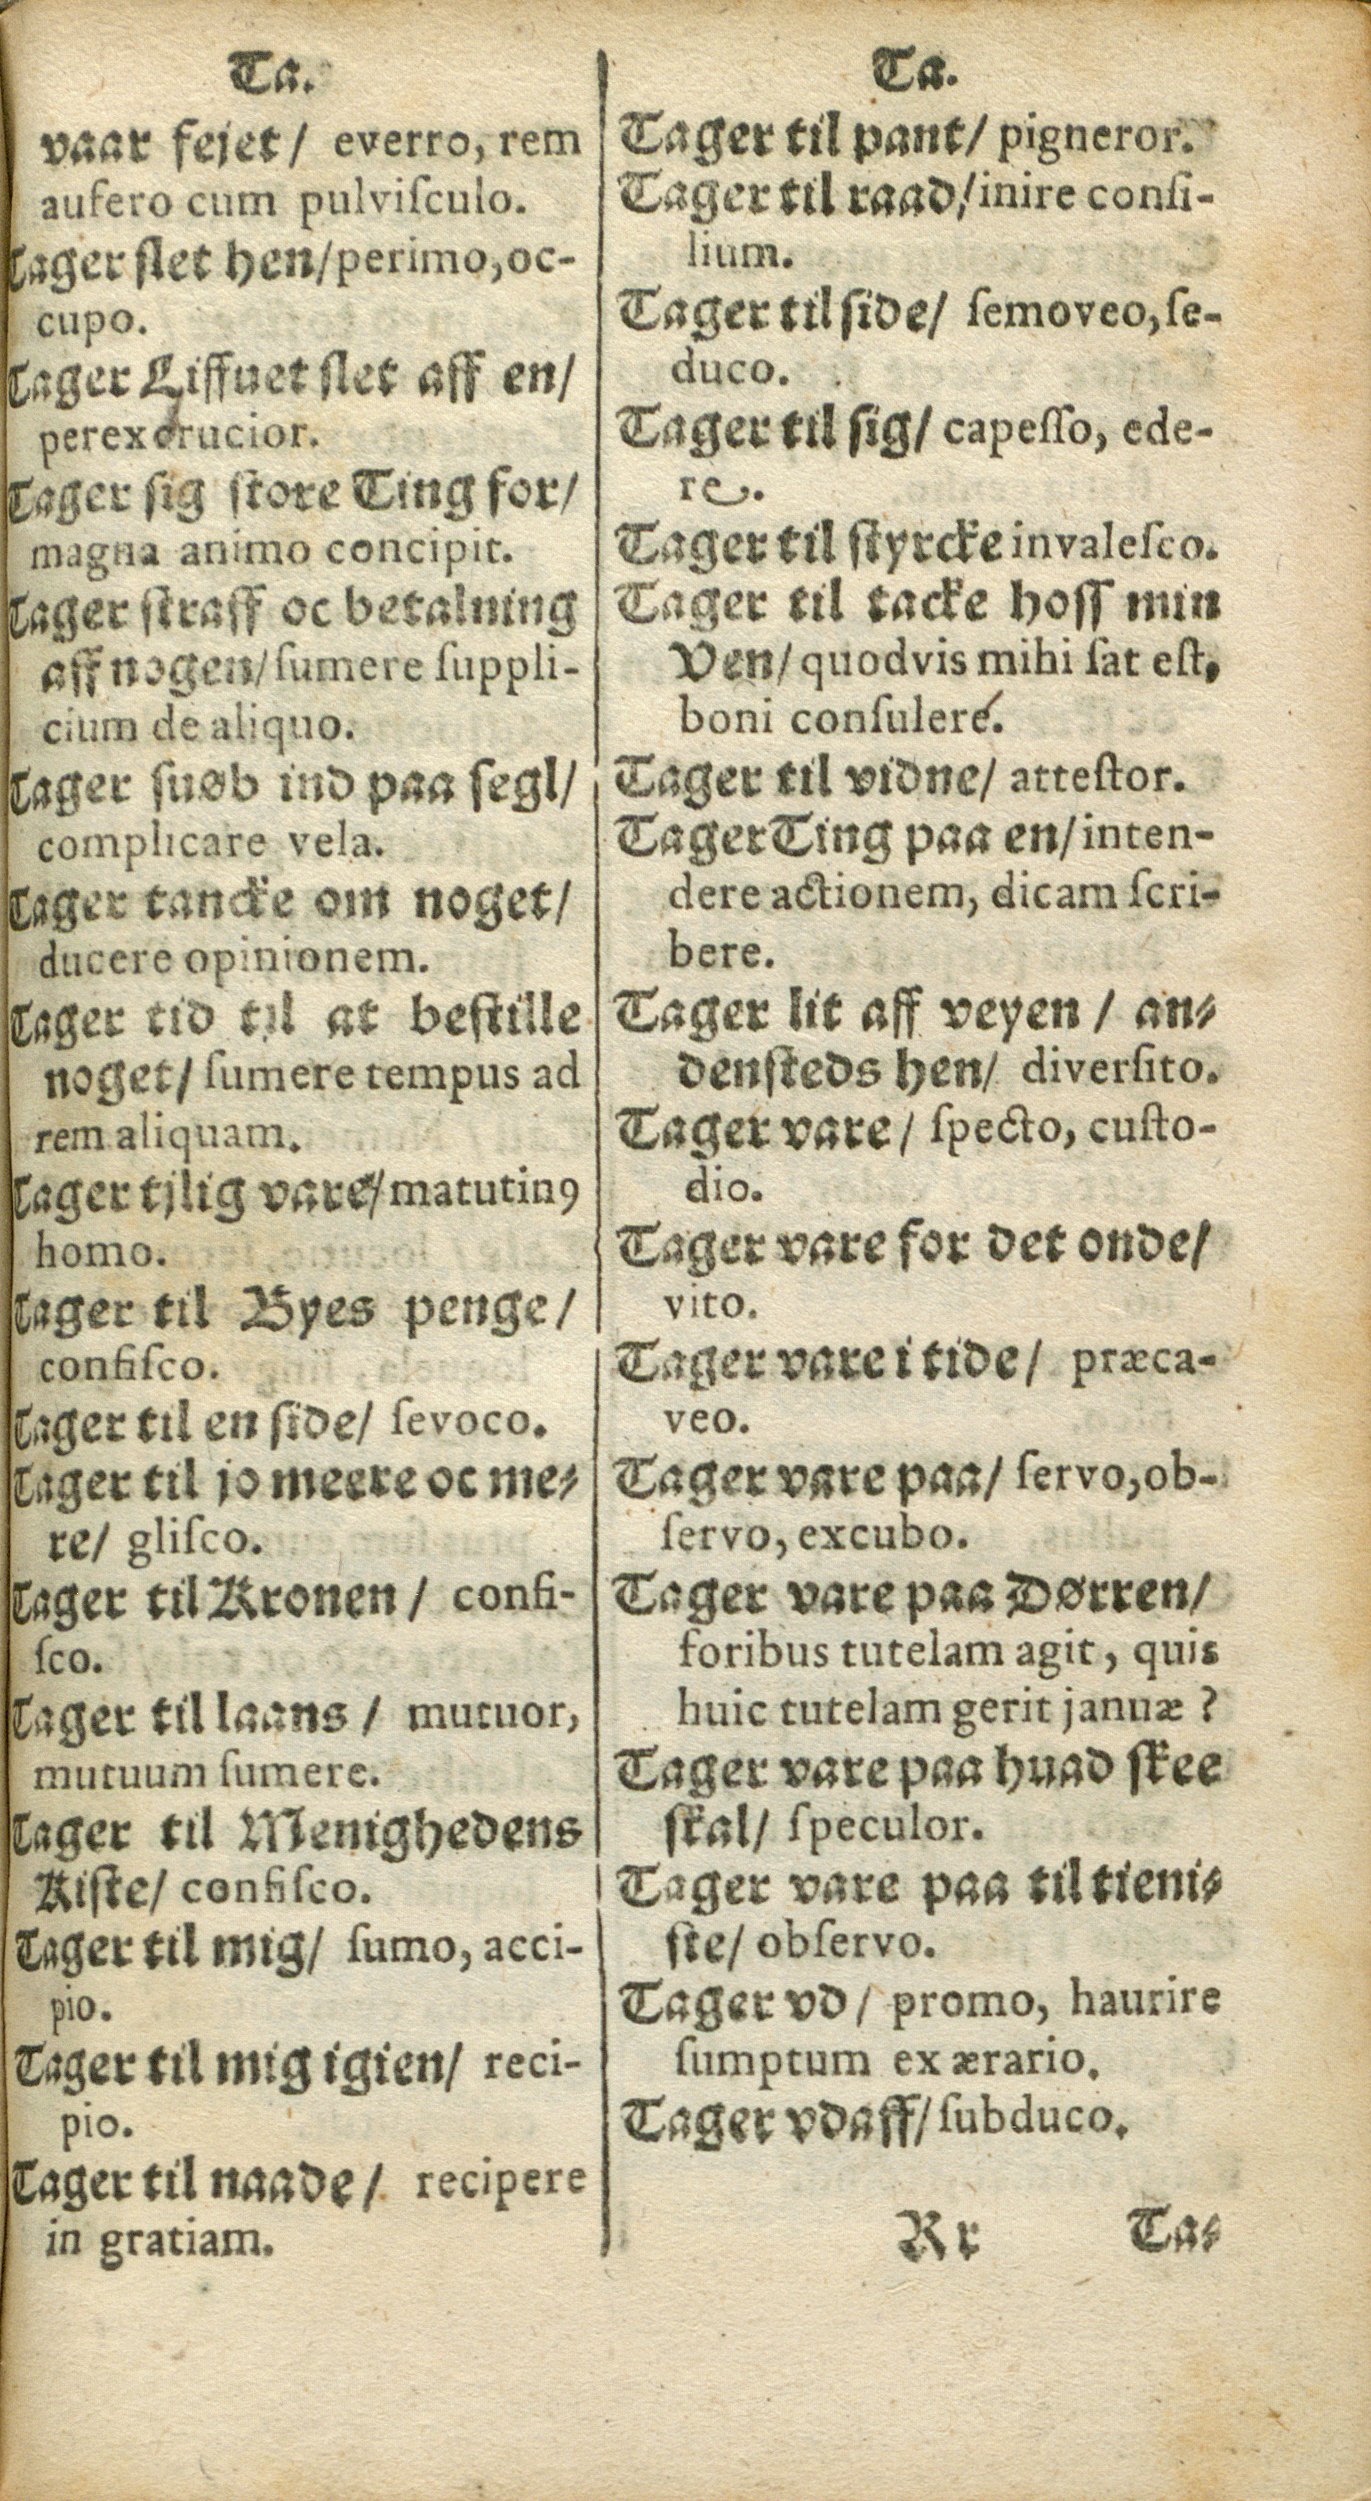 Ta.
vaar fejet/ everro, rem
aufero cum pulviſculo.
Tager ſlet hen/perimo,oc-
cupo.
Tager Liffuet ſlet aff en/
perexcrucior.
Tager ſig ſtore Ting for/
magna animo concipit.
Tager ſtraff oc betalning
aff nogen/ſumere ſuppli-
cium de aliquo.
Tager ſuøb ind paa ſegl/
complicare vela.
Tager tancke om noget/
ducere opinionem.
Tager tid til at beſtille
noget/ ſumere tempus ad
rem aliquam.
Tager tjlig vare/matutinꝰ
homo.
Tager til Byes penge/
confiſco.
Tager til en ſide/ ſevoco.
Tager til jo meere oc me⸗
re/ gliſco.
Tager til Kronen/ confi-
ſco.
Tager til laans/ mutuor,
mutuum ſumere.
Tager til Menighedens
Kiſte/ confiſco.
Tager til mig/ ſumo, acci-
pio.
Tager til mig igien/ reci-
pio.
Tager til naade/ recipere
in gratiam.
Ta.
Tager til pant/ pigneror.
Tager til raad/inire conſi-
lium.
Tager til ſide/ ſemoveo,ſe-
duco.
Tager til ſig/ capeſſo, ede-
re.
Tager til ſtyrcke invaleſco.
Tager til tacke hoſſ min
Ven/ quodvis mihi ſat eſt,
boni conſulere.
Tager til vidne/ atteſtor.
Tager Ting paa en/inten-
dere actionem, dicam ſcri-
bere.
Tager lit aff veyen/ an⸗
denſteds hen/ diverſito.
Tager vare/ ſpecto, cuſto-
dio.
Tager vare for det onde/
vito.
Tager vare i tide/ præca-
veo.
Tager vare paa/ ſervo,ob-
ſervo, excubo.
Tager vare paa Dørren/
foribus tutelam agit, quis
huic tutelam gerit januæ?
Tager vare paa huad ſkee
ſkal/ ſpeculor.
Tager vare paa til tieni⸗
ſte/ obſervo.
Tager vd/ promo, haurire
ſumptum ex ærario.
Tager vdaff/ſubduco.
Rr Ta⸗